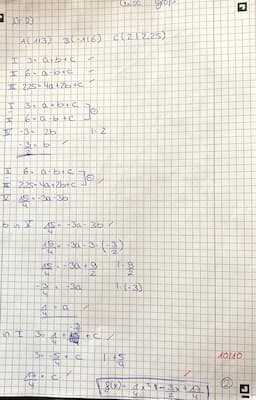 Nr. 2)
A(1|3) B(-1|6) C(2|2,25)
I 3 = a+b+c
II 6 = a-b+c
III 2,25 = 4a+2b+c
I 3 = a+b+c
II 6 = a-b+c
IV -3 = 2b |:2
-3/2 = b
II 6 = a-b+c
III 2,25 = 4a+2b+c
V 15/4 = -3a-3b
b in V 15/4 = -3a-3b
15/4 = -3a-3·(-3/2)
15/4 = -3a+9/2 |-9/2
-3/4 = -3a |:(-3)
1/4 = a
in I 3 = 1/4 + c
3 = -5/4 + c |+5/4
10/10
17/4 = c
f(x) = 1/4 x² - 3/2 x + 17/4